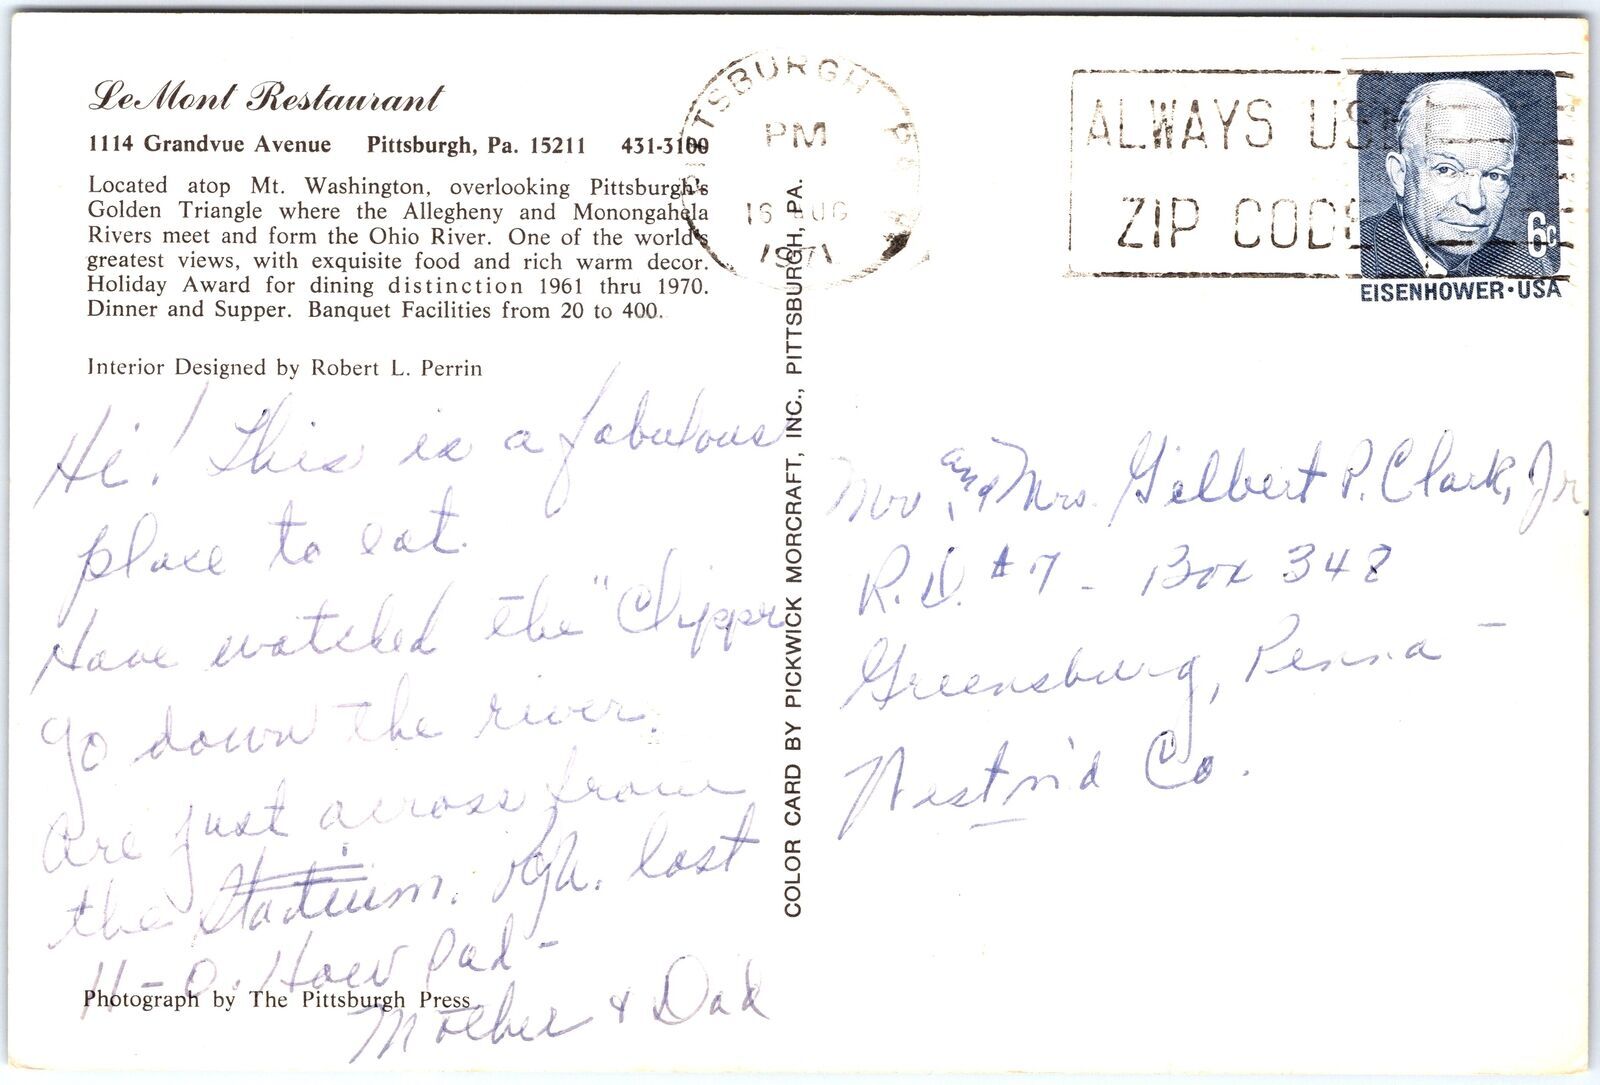 LeMont Restaurant
1114 Grandvue Avenue Pittsburgh, Pa. 15211 431-3100
Located atop Mt. Washington, overlooking Pittsburgh's
Golden Triangle where the Allegheny and Monongahela
Rivers meet and form the Ohio River. One of the world's
greatest views, with exquisite food and rich warm decor.
Holiday Award for dining distinction 1961 thru 1970.
Dinner and Supper. Banquet Facilities from 20 to 400.
Interior Designed by Robert L. Perrin
Hi! This is a fabulous
place to eat.
Have watched the "Clipper
go down the river.
are just across from
the Stadium. Pgh. lost
11-0. How sad -
Mother & Dad
Photograph by The Pittsburgh Press
COLOR CARD BY PICKWICK MORCRAFT, INC., PITTSBURGH, PA.
PITTSBURGH PA
PM
16 AUG
1971
ALWAYS USE
ZIP CODE
6c
EISENHOWER·USA
Mr. and Mrs. Gilbert P. Clark, Jr
R.D. #7 - Box 348
Greensburg, Penna -
Westm'd Co.